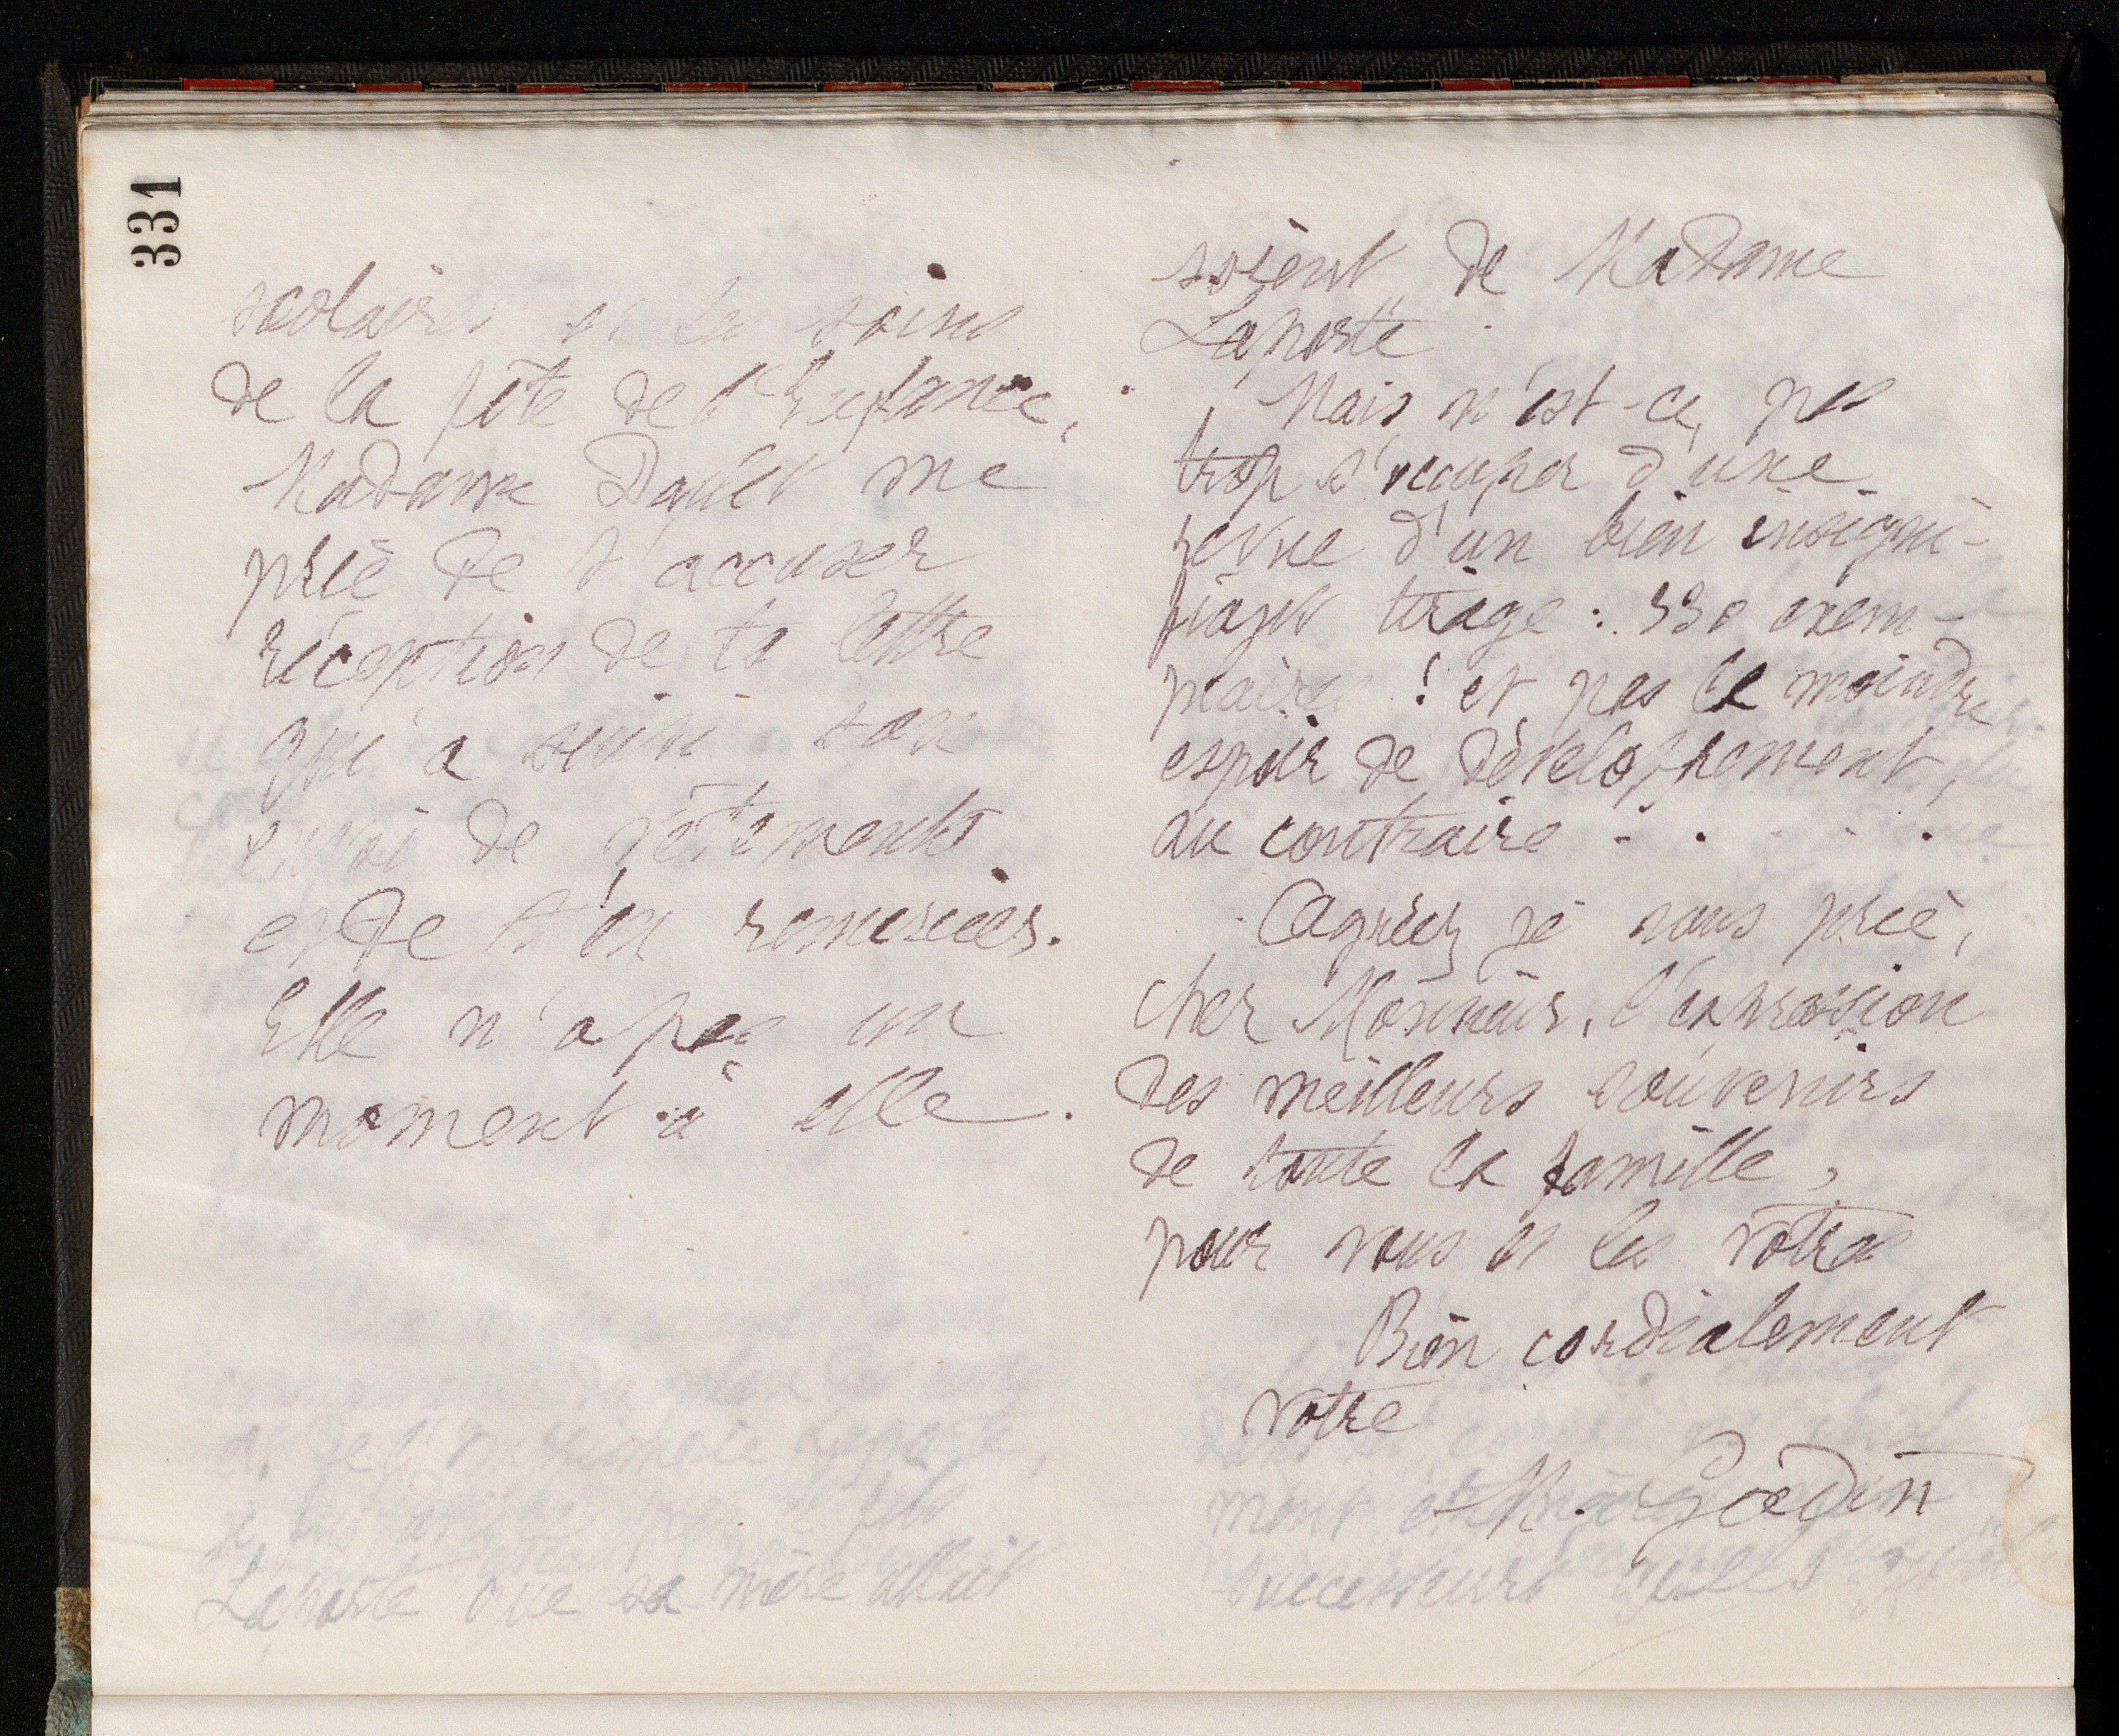 331
scolaires et les soins
de la fête de l'Enfance,
Madame Dallet me
prie de t'accuser
réception de ta lettre
qui a suivi ton
envoi de vêtements
et de t'en remercier.
Elle n'a pas un
moment à elle.
soient de Madame
Laporte.
Mais n'est-ce pas
trop s'occuper d'une
revue d'un bien insigni-
fiant tirage : 530 exem-
plaires ! et pas le moindre
espoir de développement,
au contraire . . . . .
Agréez je vous prie,
cher Monsieur, l'expression
des meilleurs souvenirs
de toute la famille,
pour vous et les vôtres
Bien cordialement
votre
M. Godin